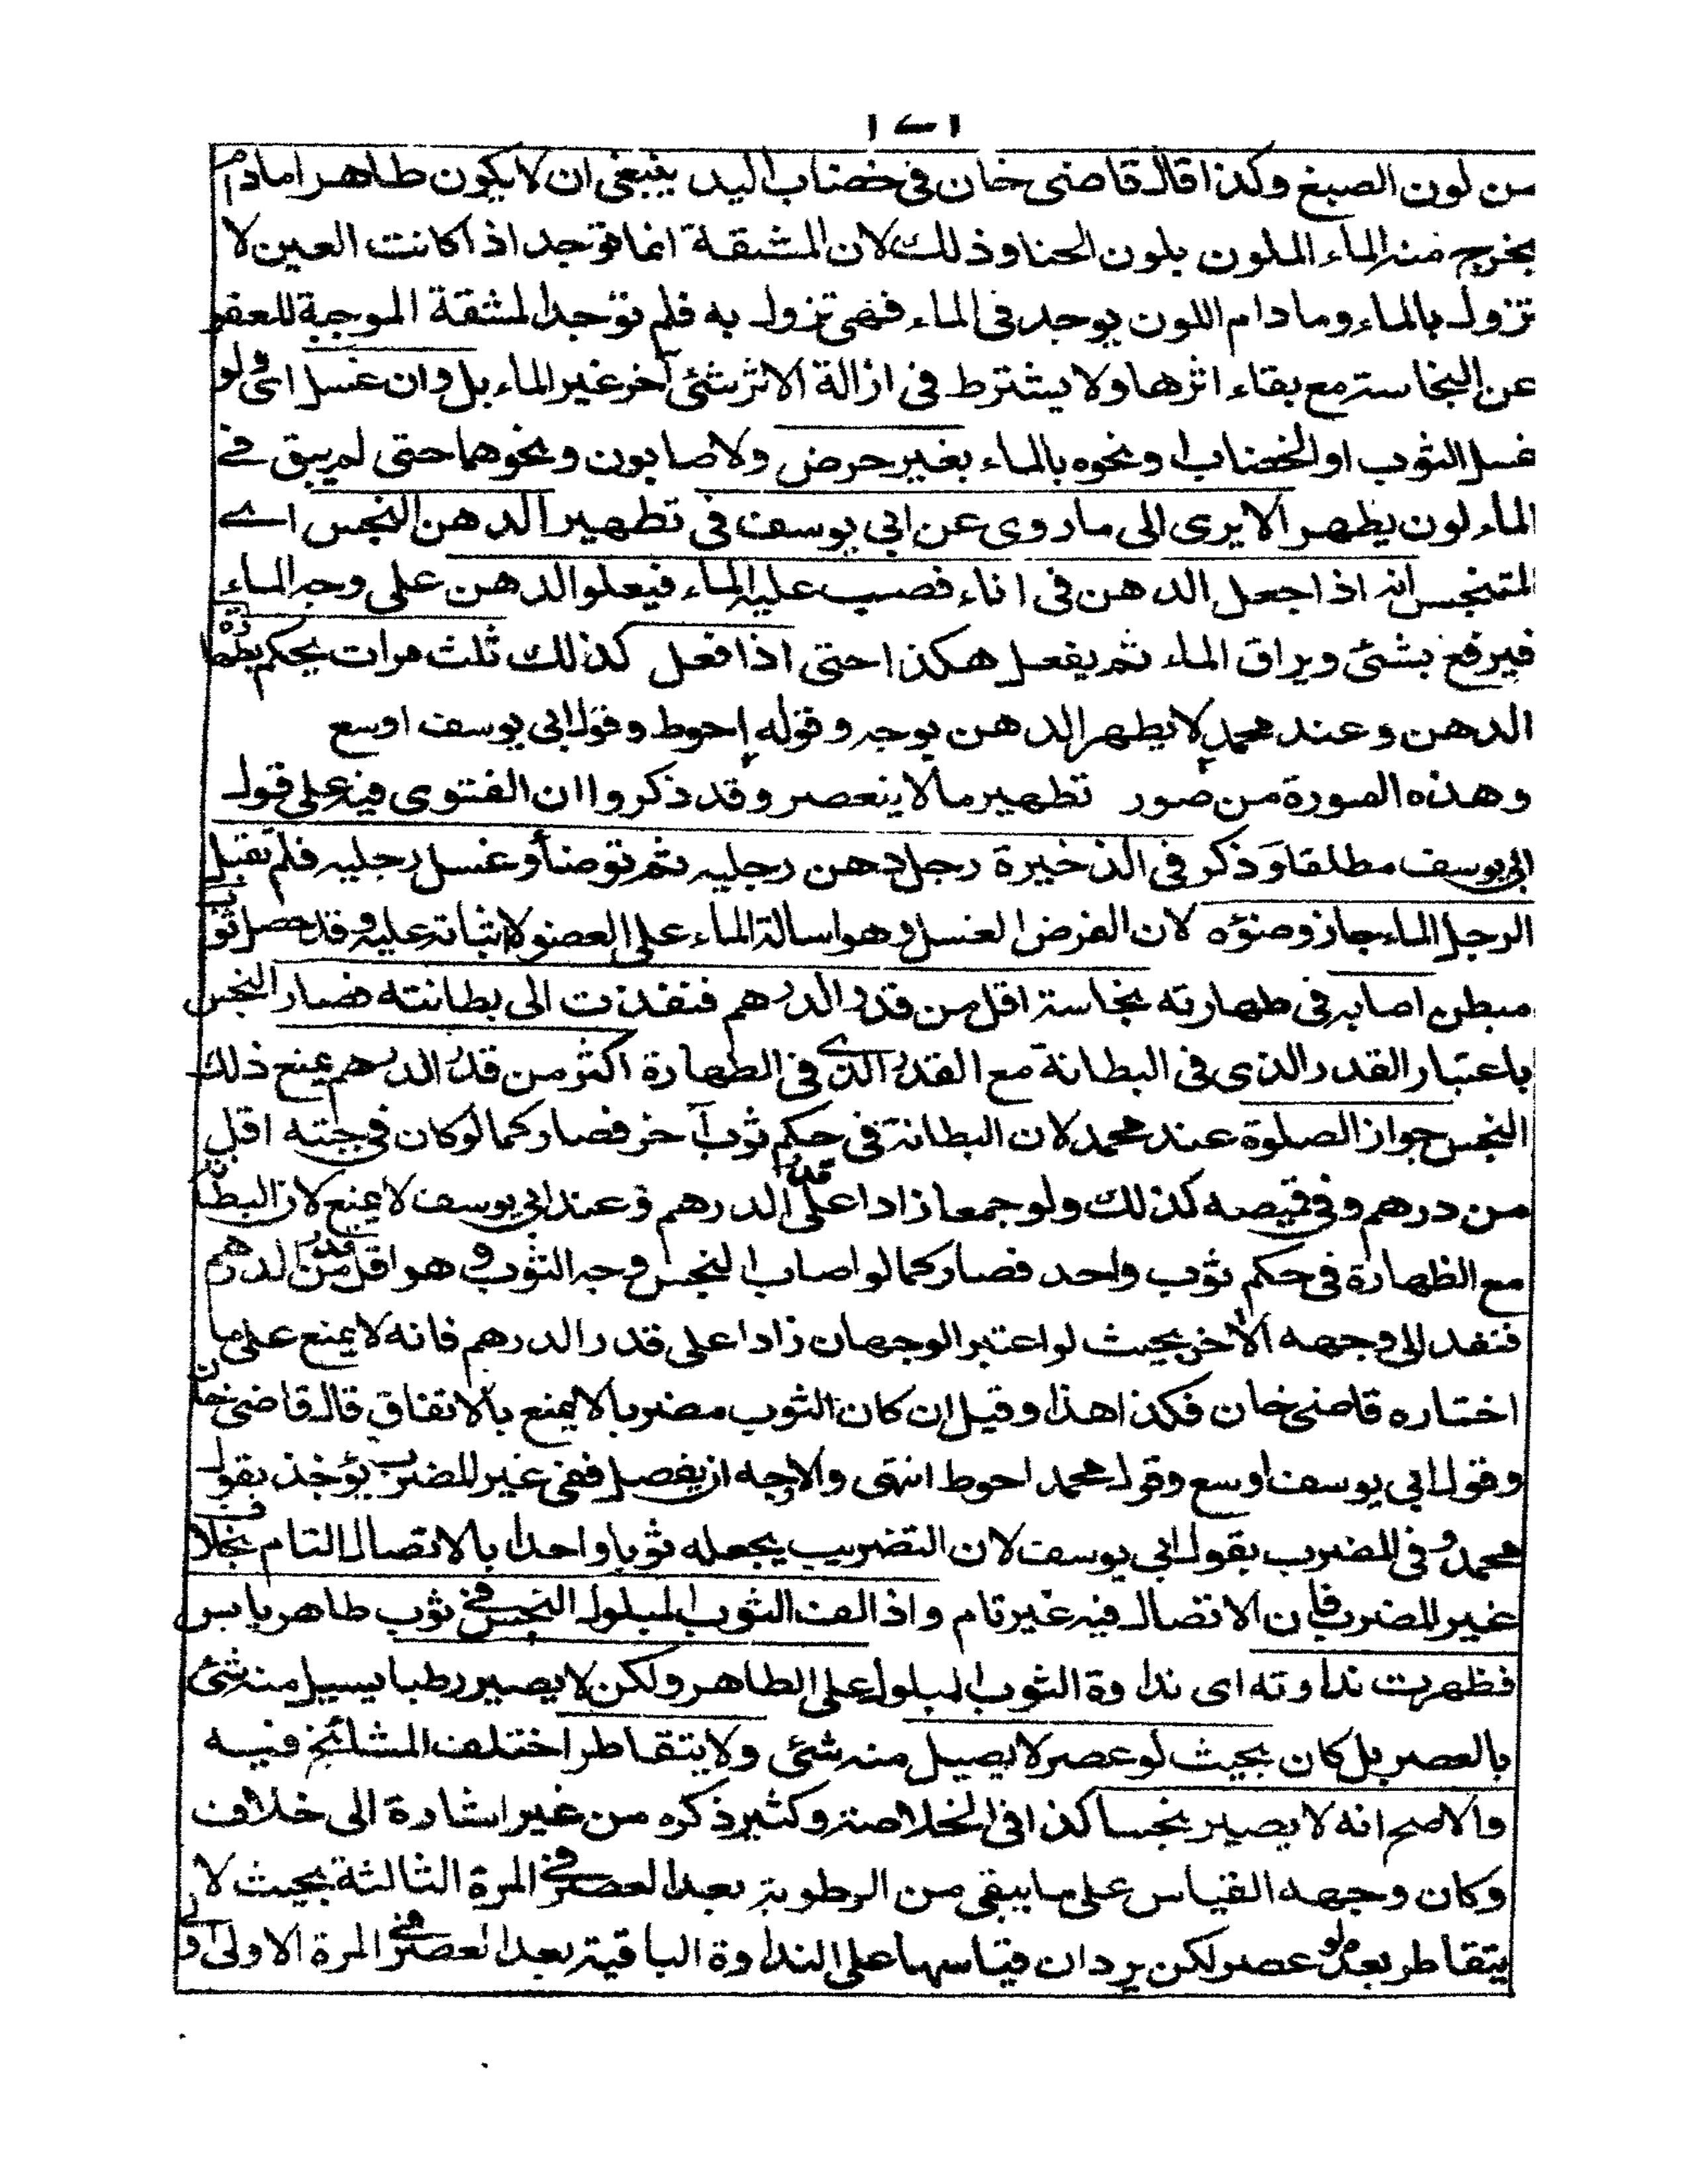 ١٧١
من لون الصبغ وكذا قال قاضي خان في خضاب اليد ينبغي ان لا يكون طاهرا مادام
يخرج منه الماء الملون بلون الحنا وذلك لان المشقة انما توجد اذا كانت العين لا
تزول بالماء وما دام اللون يوجد في الماء فهي تزول به فلم توجد المشقة الموجبة للعفو
عن النجاسة مع بقاء اثرها ولا يشترط في ازالة الاثر شئ آخر غير الماء بل وان غسل اي ولو
غسل الثوب او الخضاب او نحوه بالماء بغير حرض ولا صابون ونحوهما حتى لم يبق في
الماء لون يطهر الا يرى الى ما روى عن ابي يوسف في تطهير الدهن النجس اے
المتنجس انه اذا جعل الدهن في اناء فصب عليه الماء فيعلو الدهن على وجه الماء
فيرفع بشئ ويراق الماء ثم يفعل هكذا حتى اذا فعل كذلك ثلث مرات يحكم بطهارة
الدهن وعند محمد لا يطهر الدهن بوجه وقوله احوط وقول ابي يوسف اوسع
وهذه الصورة من صور تطهير ما لا ينعصر وقد ذكروا ان الفتوى فيه على قول
ابي يوسف مطلقا وذكر في الذخيرة رجل دهن رجليه ثم توضأ وغسل رجليه فلم يقبل
الرجل الماء جاز وضوءه لان الفرض الغسل وهو اسالة الماء على العضو لا اثباته عليه وقد حصل ثوب
مبطن اصابه في ظهارته نجاسة اقل من قدر الدرهم فنفذت الى بطانته فصار النجس
باعتبار القدر الذي في البطانة مع القدر الذے في الظهارة اكثر من قدر الدرهم يمنع ذلك
النجس جواز الصلوة عند محمد لان البطانة في حكم ثوب آخر فصار كما لو كان في جبته اقل
من درهم وفي قميصه كذلك ولو جمعا زادا على قدر الدرهم وعند ابي يوسف لا يمنع لان البطانة
مع الظهارة في حكم ثوب واحد فصار كما لو اصاب النجس وجه الثوب وهو اقل من قدر الدرهم
فنفد الى وجهه الآخر بحيث لو اعتبر الوجهان زادا على قدر الدرهم فانه لا يمنع على ما
اختاره قاضي خان فكذا هذا وقيل ان كان الثوب مضربا لا يمنع بالاتفاق قال قاضي خان
وقول ابي يوسف اوسع وقول محمد احوط انتهى والاوجه ان يفصل ففي غير المضرب يؤخذ بقول
محمد وفي المضرب بقول ابي يوسف لان التضريب يجعله ثوبا واحدا بالاتصال التام بخلاف
غير المضرب فان الاتصال فيه غير تام واذا لف الثوب المبلول النجس في ثوب طاهر يابس
فظهرت نداوته اى نداوة الثوب المبلول على الطاهر ولكن لا يصير رطبا يسيل منه شئ
بالعصر بل كان بحيث لو عصر لا يسيل منه شئ ولا يتقاطر اختلف المشائخ فيه
والاصح انه لا يصير نجسا كذا في الخلاصة وكثير ذكره من غير اشارة الى خلاف
وكان وجهه القياس على ما يبقى من الرطوبة بعد العصر في المرة الثالثة بحيث لا
يتقاطر بعد لو عصر لكن يرد ان قياسها على النداوة الباقية بعد العصر في المرة الاولى